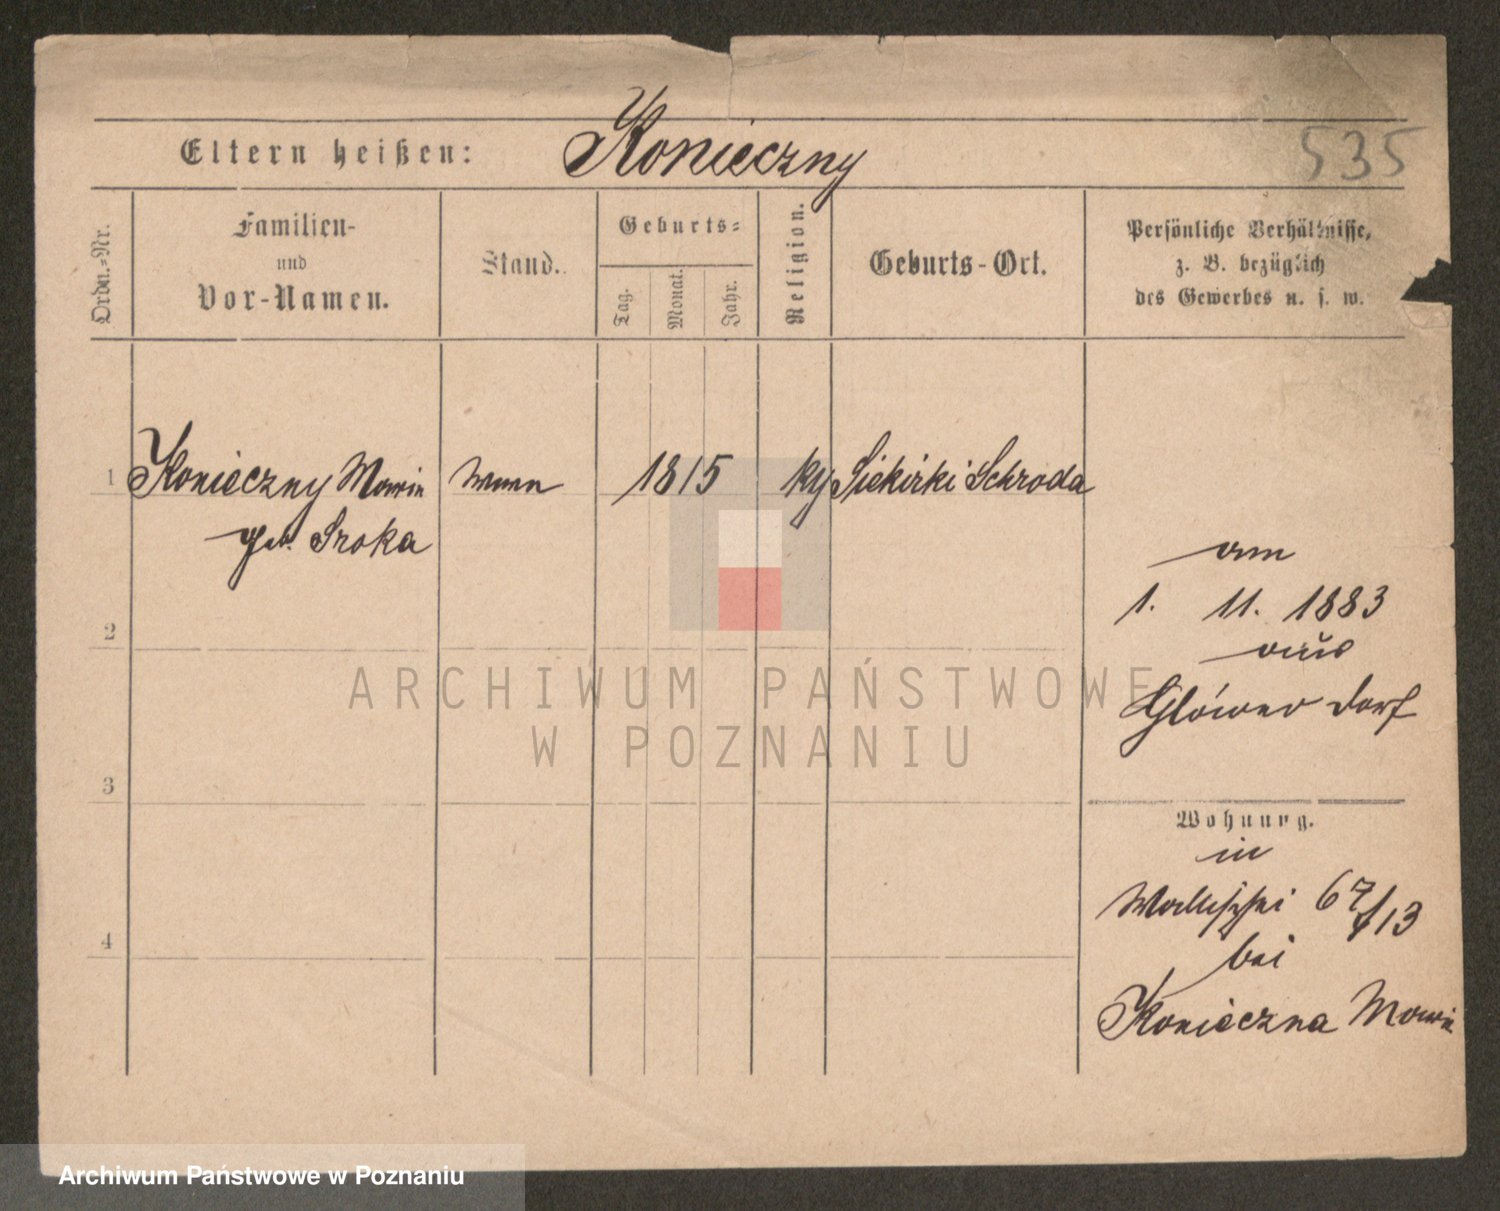 Eltern heißen: Konieczny
535
Ordn.-Nr.
Familien-
und
Vor-Namen.
Stand.
Geburts-
Tag.
Monat.
Jahr.
Religion.
Geburts-Ort.
Persönliche Verhältnisse,
z. B. bezüglich
des Gewerbes u. s. w.
1 Konieczny Marie 1815 Siekirki Schroda
geb. Sroka
am
1. 11. 1883
2
aus
Główno Dorf
ARCHIWUM PAŃSTWOWE
W POZNANIU
3
Wohnung.
in
Wallischei 67/13
4
bei
Konieczna Marie
Archiwum Państwowe w Poznaniu